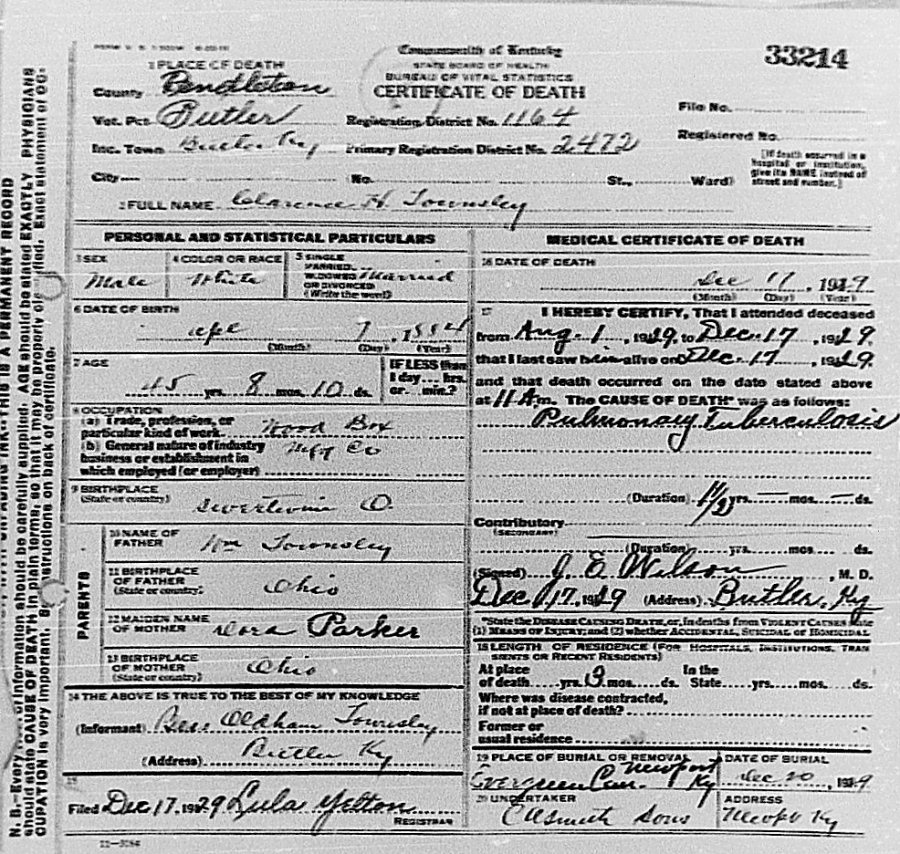 33214
1 PLACE OF DEATH
Commonwealth of Kentucky
STATE BOARD OF HEALTH
BUREAU OF VITAL STATISTICS
CERTIFICATE OF DEATH
County Pendleton
Vot. Pct. Butler
Registration District No. 1164
File No.
Inc. Town Butler Ky
Primary Registration District No. 2472
Registered No.
City No. St., Ward)
[If death occurred in a hospital or institution, give its NAME instead of street and number.]
2 FULL NAME Clarence H. Townsley
PERSONAL AND STATISTICAL PARTICULARS
3 SEX Male
4 COLOR OR RACE White
5 SINGLE MARRIED, WIDOWED OR DIVORCED (Write the word) Married
6 DATE OF BIRTH
7 1884
(Month) (Day) (Year)
7 AGE
45 yrs. 8 mos. 10 ds.
IF LESS than 1 day... hrs. or... min.?
8 OCCUPATION
(a) Trade, profession, or particular kind of work Wood Box
(b) General nature of industry business or establishment in which employed (or employer) Mfg Co
9 BIRTHPLACE
(State or country) O.
PARENTS
10 NAME OF FATHER Wm Townsley
11 BIRTHPLACE OF FATHER (State or country) Ohio
12 MAIDEN NAME OF MOTHER Dora Parker
13 BIRTHPLACE OF MOTHER (State or country) Ohio
14 THE ABOVE IS TRUE TO THE BEST OF MY KNOWLEDGE
(Informant) Oldham Townsley
(Address) Butler Ky
15
Filed Dec 17, 1929 Lula Yelton
REGISTRAR
MEDICAL CERTIFICATE OF DEATH
16 DATE OF DEATH
Dec 17, 1929
(Month) (Day) (Year)
17 I HEREBY CERTIFY, That I attended deceased
from Aug. 1, 1929, to Dec. 17, 1929.
that I last saw him alive on Dec. 17, 1929.
and that death occurred on the date stated above
at 11 A m. The CAUSE OF DEATH* was as follows:
Pulmonary Tuberculosis
(Duration) yrs. mos. ds.
Contributory
(SECONDARY)
(Duration) yrs. mos. ds.
(Signed) J. E. Wilson, M. D.
Dec 17, 1929 (Address) Butler, Ky
*State the DISEASE CAUSING DEATH, or, in deaths from VIOLENT CAUSES state
(1) MEANS OF INJURY; and (2) whether ACCIDENTAL, SUICIDAL or HOMICIDAL
18 LENGTH OF RESIDENCE (FOR HOSPITALS, INSTITUTIONS, TRANSIENTS OR RECENT RESIDENTS)
At place of death yrs. 9 mos. ds. In the State yrs. mos. ds.
Where was disease contracted,
if not at place of death?
Former or
usual residence
19 PLACE OF BURIAL OR REMOVAL
Evergreen Cem. Newport Ky
DATE OF BURIAL
Dec 20, 1929
20 UNDERTAKER
Sons
ADDRESS
Ky